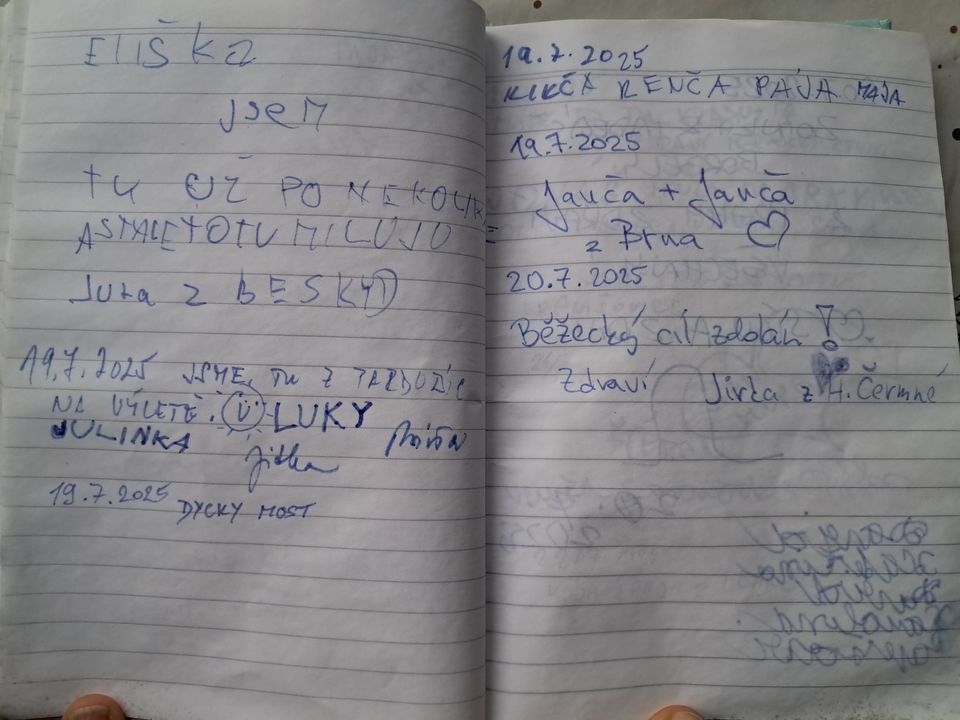 ELIŠKA
jseM
TU UŽ PO NEKOLIK
A STALE TO TU MILUJU
Jura z BESKYD
19.7.2025 JSME TU Z PARDUBIC
NA VÝLETĚ. LUKY
JULINKA Jitka
19.7.2025 DYCKY MOST
19.7.2025
KIKČA RENČA PÁJA MÁJA
19.7.2025
Janča + Janča
z Brna
20.7.2025
Běžecký cíl zdolán!
Zdraví Jirka z H. Čermné